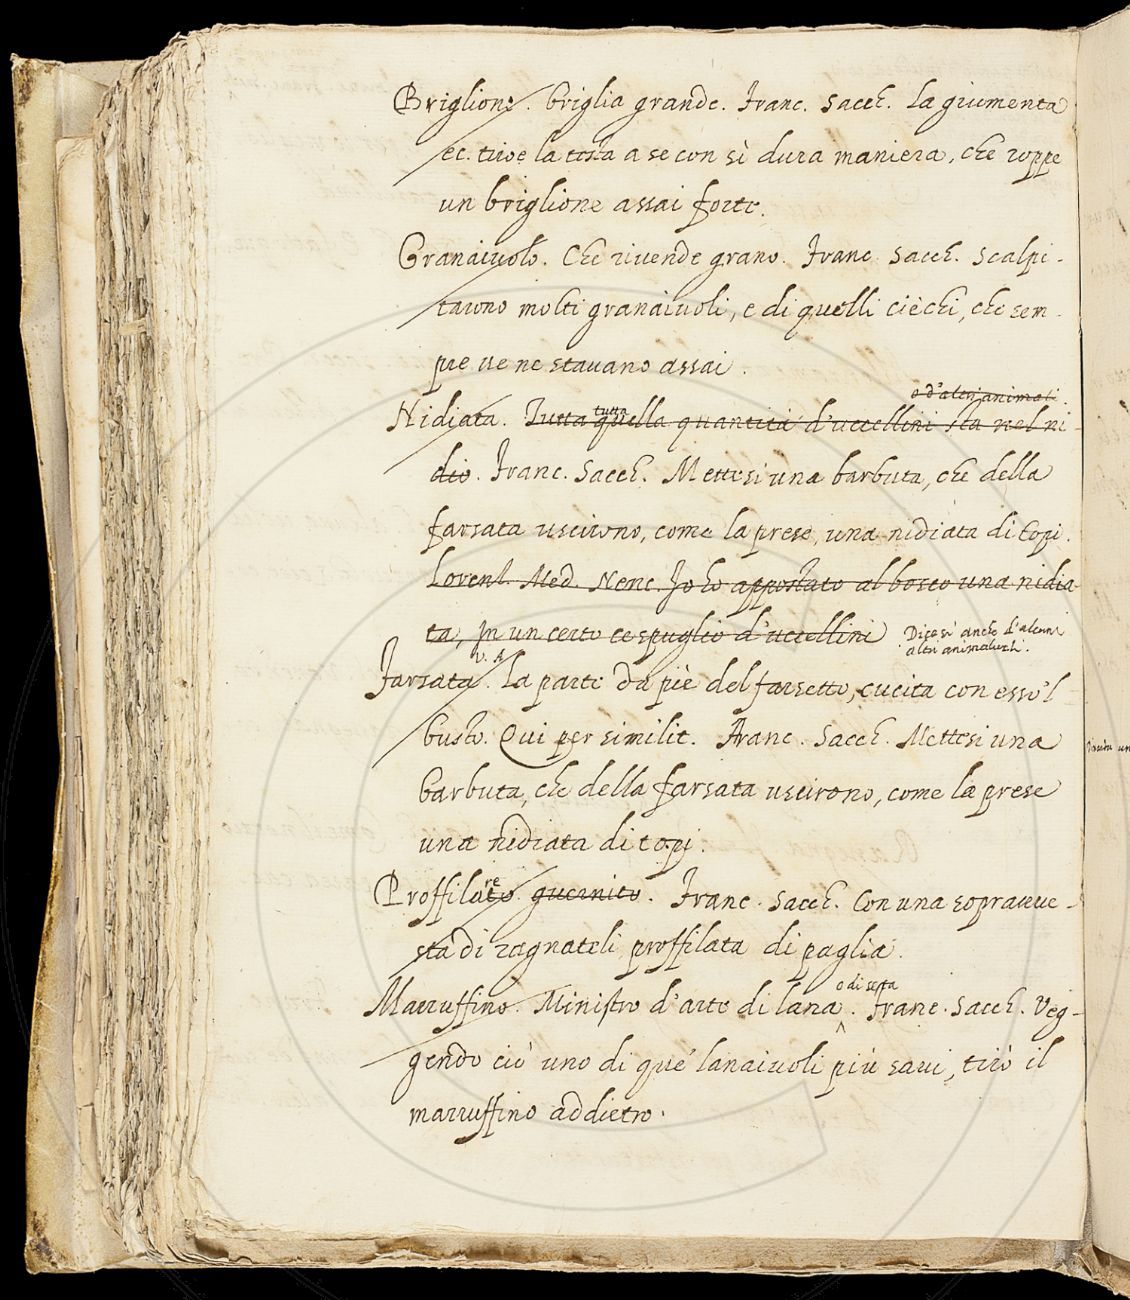 Briglione. briglia grande. Franc. Sacch. La giumenta
ec. tiroe la testa a se con sì dura maniera, che roppe
un briglione assai forte.
Granaiuolo. Che rivende grano. Franc. Sacch. Scalpi-
tarono molti granaiuoli, e di quelli ciechi, che sem
pre ve ne stavano assai.
o d'altri animali.
Nidiata. Tutta quella quantità d'uccellini sta nel ni-
tutta
dio. Franc. Sacch. Mettesi una barbuta, che della
farsata uscirono, come la prese, una nidiata di topi.
Lorenz. Med. Nenc. Io ho appostato al bosco una nidia-
ta, In un certo cespuglio d'uccellini
Dicesi anche d'alcuni
altri animaluzzi.
v. A.
Farsata. La parte da piè del farsetto, cucita con esso'l
busto. Qui per similit. Franc. Sacch. Mettesi una
barbuta, che della farsata uscirono, come la prese
una nidiata di topi.
Proffilato guernito. Franc. Sacch. Con una sopravve-
re
sta di ragnateli proffilata di paglia.
o di seta
Marruffino. Ministro d'arte di lana. Franc. Sacch. Veg-
gendo ciò uno di que' lanaiuoli più savi, tirò il
marruffino addietro.